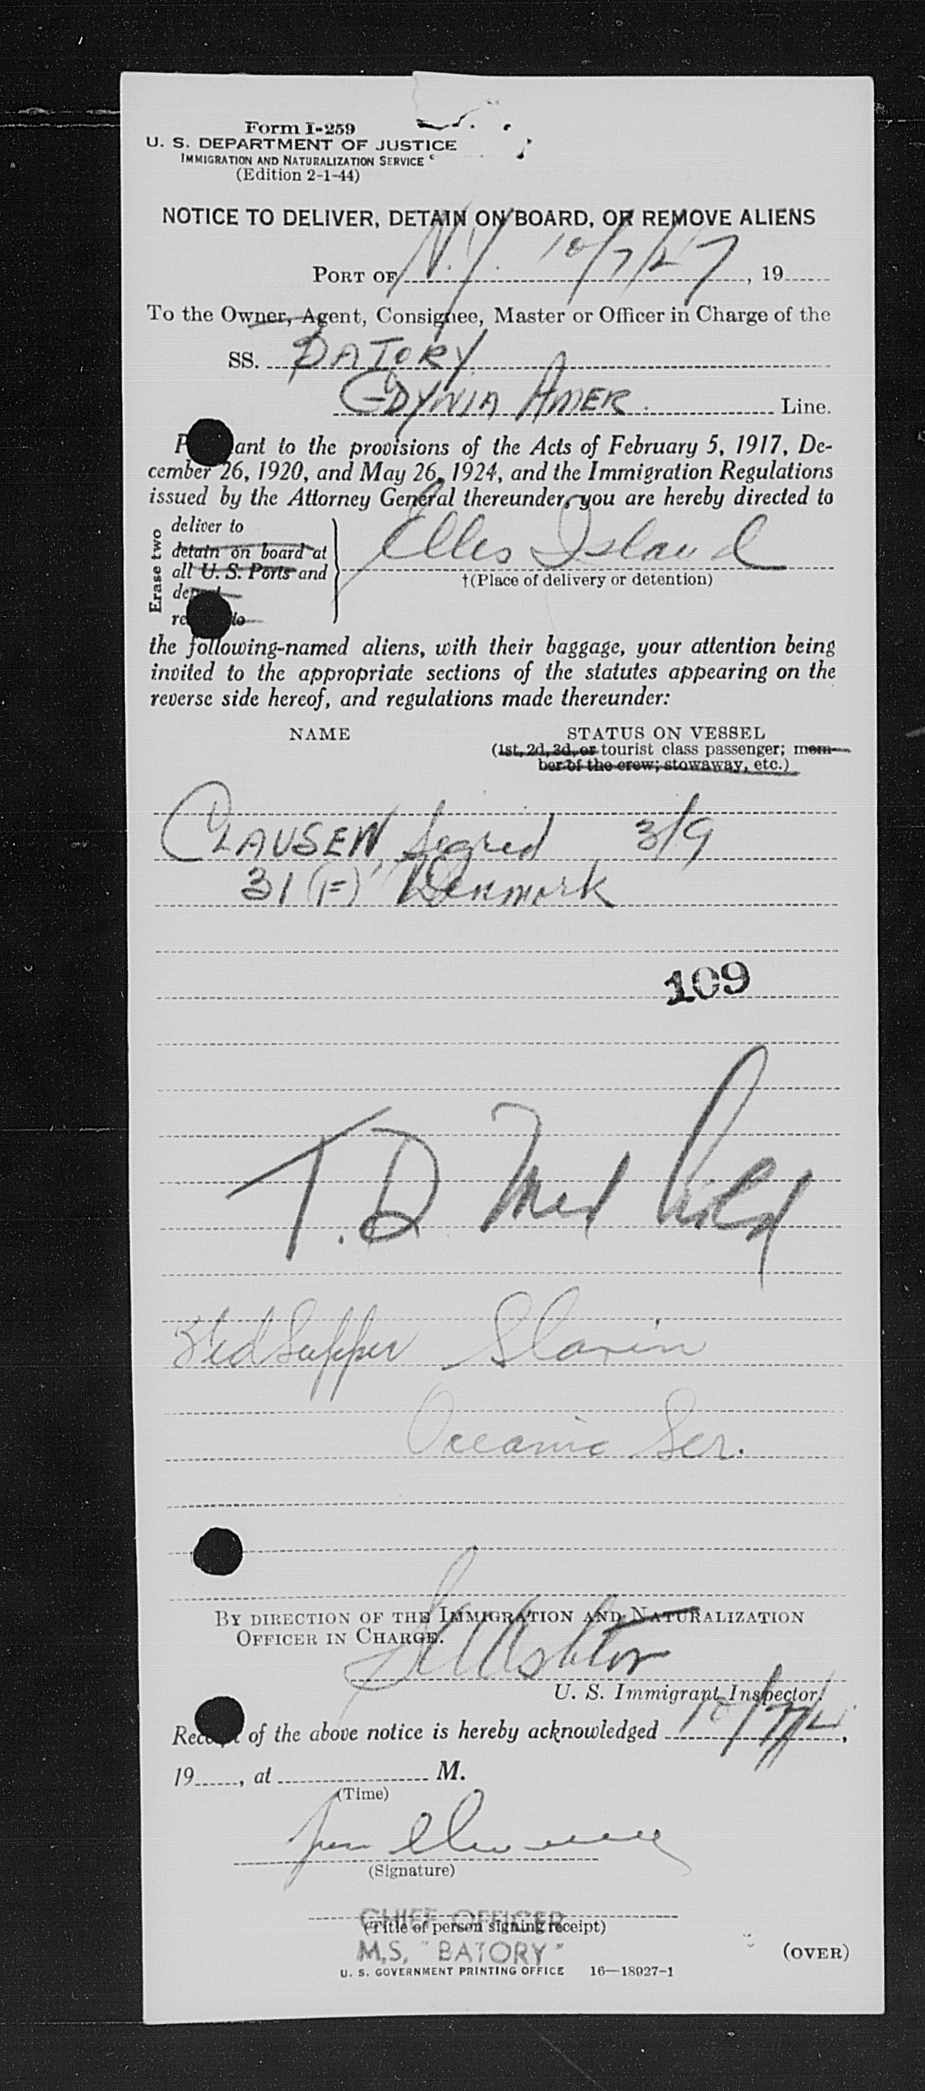 Form I-259
U. S. DEPARTMENT OF JUSTICE
IMMIGRATION AND NATURALIZATION SERVICE
(Edition 2-1-44)
NOTICE TO DELIVER, DETAIN ON BOARD, OR REMOVE ALIENS
PORT OF N.Y. 10/7/47, 19
To the Owner, Agent, Consignee, Master or Officer in Charge of the
SS. BATORY
GDYNIA AMER. Line.
ant to the provisions of the Acts of February 5, 1917, De-
cember 26, 1920, and May 26, 1924, and the Immigration Regulations
issued by the Attorney General thereunder, you are hereby directed to
Erase two
deliver to
detain on board at
all U. S. Ports and
Ellis Island
†(Place of delivery or detention)
the following-named aliens, with their baggage, your attention being
invited to the appropriate sections of the statutes appearing on the
reverse side hereof, and regulations made thereunder:
NAME STATUS ON VESSEL
(1st, 2d, 3d, or tourist class passenger; mem-
ber of the crew; stowaway, etc.)
CLAUSEN, Segrid 3/9
31 (F) Denmark
109
T.D. Med
Supper Slavin
Oceanic Ser.
BY DIRECTION OF THE IMMIGRATION AND NATURALIZATION
OFFICER IN CHARGE.
U. S. Immigrant Inspector.
of the above notice is hereby acknowledged 10/7/4,
19, at M.
(Time)
(Signature)
CHIEF OFFICER
(Title of person signing receipt)
M.S. "BATORY"
(OVER)
U. S. GOVERNMENT PRINTING OFFICE 16—18927-1